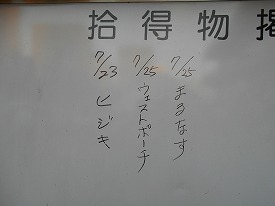 拾得物掲
7/25 まるなす
7/25 ウェストポーチ
7/23 ヒジキ